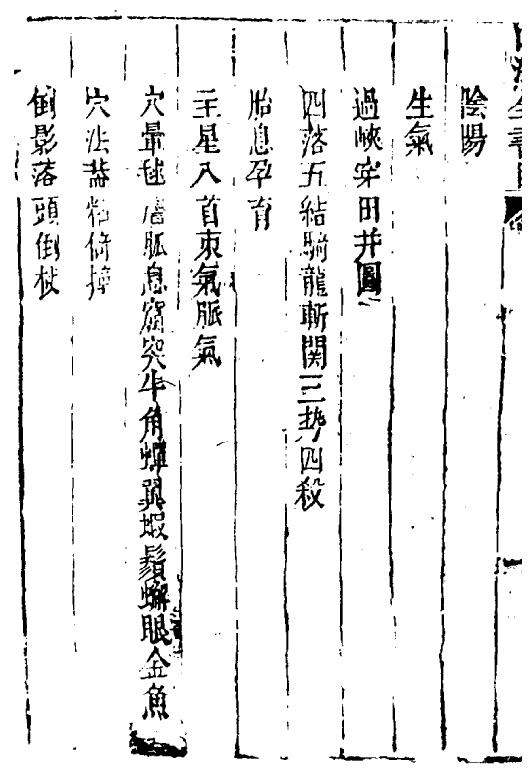 陰陽
生氣
過峽穿田并圖
四落五結騎龍斬関三勢四殺
胎息孕育
主星入首束氣脈氣
穴暈毬脈息窟突牛角蟬翼蝦鬚蠏眼金魚
穴法蓋粘倚撞
倒影落頭倒杖